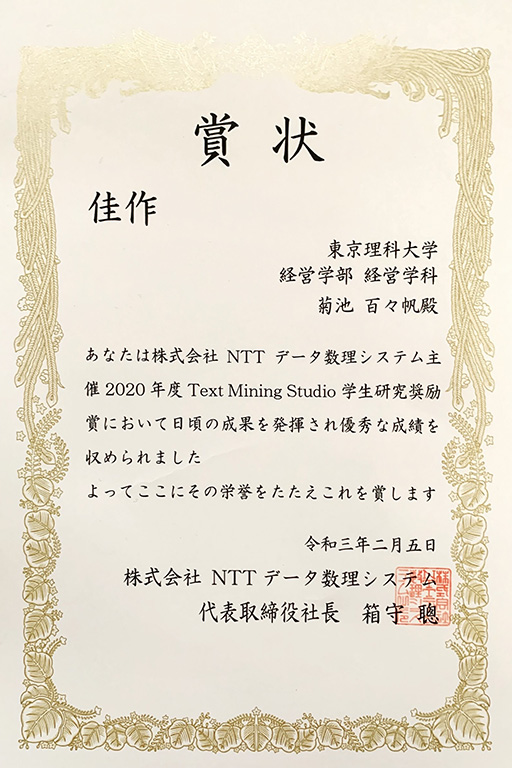 賞状
佳作
東京理科大学
経営学部 経営学科
菊池 百々帆殿
あなたは株式会社 NTT データ数理システム主
催2020年度 Text Mining Studio 学生研究奨励
賞において日頃の成果を発揮され優秀な成績を
収められました
よってここにその栄誉をたたえこれを賞します
令和三年二月五日
株式会社 NTT データ数理システム
代表取締役社長 箱守 聰